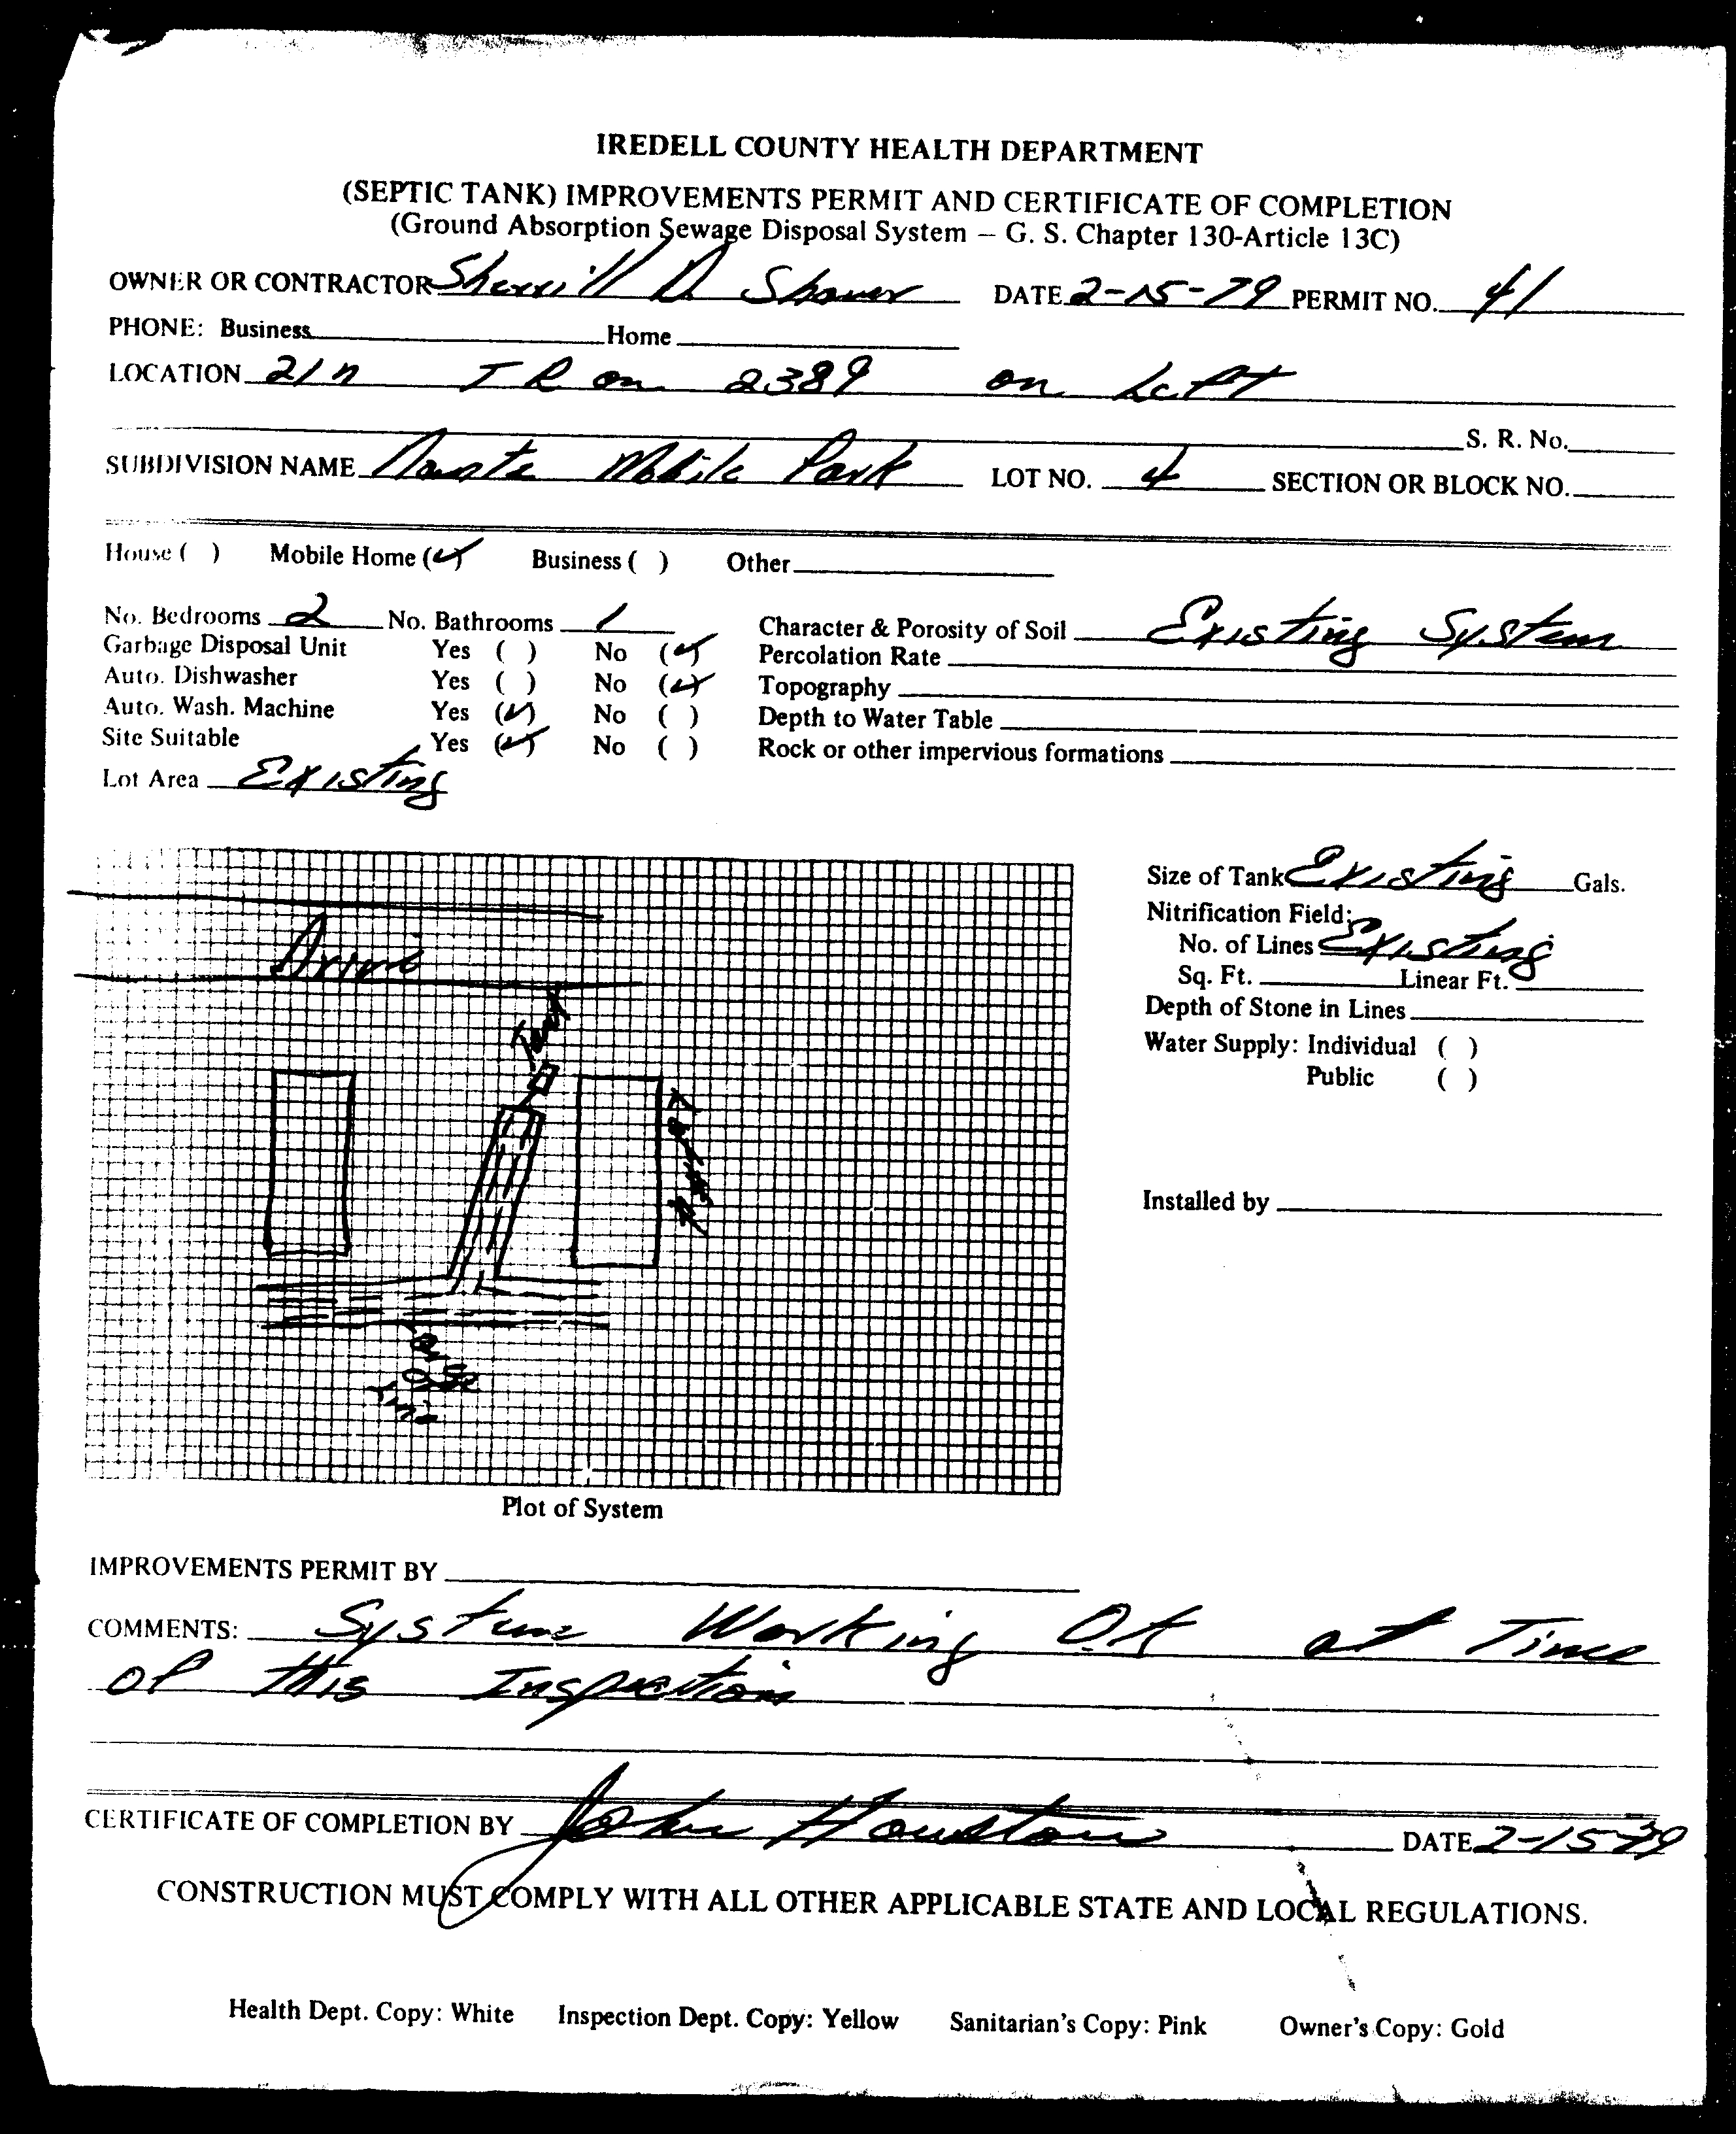 IREDELL COUNTY HEALTH DEPARTMENT
(SEPTIC TANK) IMPROVEMENTS PERMIT AND CERTIFICATE OF COMPLETION
(Ground Absorption Sewage Disposal System – G. S. Chapter 130-Article 13C)
OWNER OR CONTRACTOR Sherrill D. DATE 2-15-79 PERMIT NO. 41
PHONE: Business Home
LOCATION 21 n T R on 2389 on Left
S. R. No.
SUBDIVISION NAME Mobile Park LOT NO. 4 SECTION OR BLOCK NO.
House ( ) Mobile Home (✓) Business ( ) Other
No. Bedrooms 2 No. Bathrooms 1 Character & Porosity of Soil Existing System
Garbage Disposal Unit Yes ( ) No (✓) Percolation Rate
Auto. Dishwasher Yes ( ) No (✓) Topography
Auto. Wash. Machine Yes (✓) No ( ) Depth to Water Table
Site Suitable Yes (✓) No ( ) Rock or other impervious formations
Lot Area Existing
Size of Tank Existing Gals.
Nitrification Field:
No. of Lines Existing
Sq. Ft. Linear Ft.
Depth of Stone in Lines
Water Supply: Individual ( )
Public ( )
Installed by
Drive
Tank
Plot of System
IMPROVEMENTS PERMIT BY
COMMENTS: System Working O.K at Time
of this Inspection
CERTIFICATE OF COMPLETION BY John Houston DATE 2-15-79
CONSTRUCTION MUST COMPLY WITH ALL OTHER APPLICABLE STATE AND LOCAL REGULATIONS.
Health Dept. Copy: White Inspection Dept. Copy: Yellow Sanitarian's Copy: Pink Owner's Copy: Gold